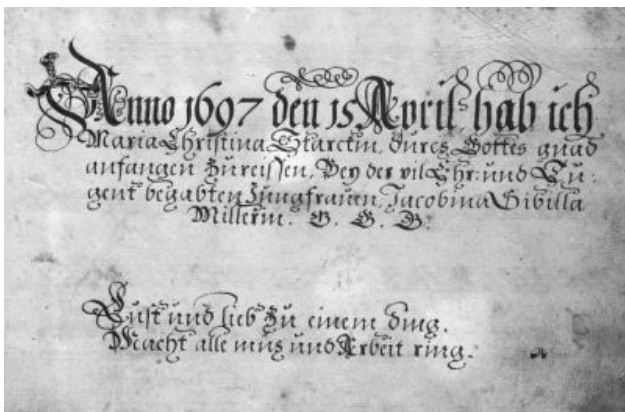 Anno 1697 den 15 April hab ich
Maria Christina Starckin, durch Gottes gnad
anfangen Zureissen, Bey der vil Ehr: und Tu:
gent begabten Jungfrauen, Jacobina Sibilla
Millerin. G. G. G.
Lust und lieb Zu einem ding.
Macht alle müh und Arbeit ring.